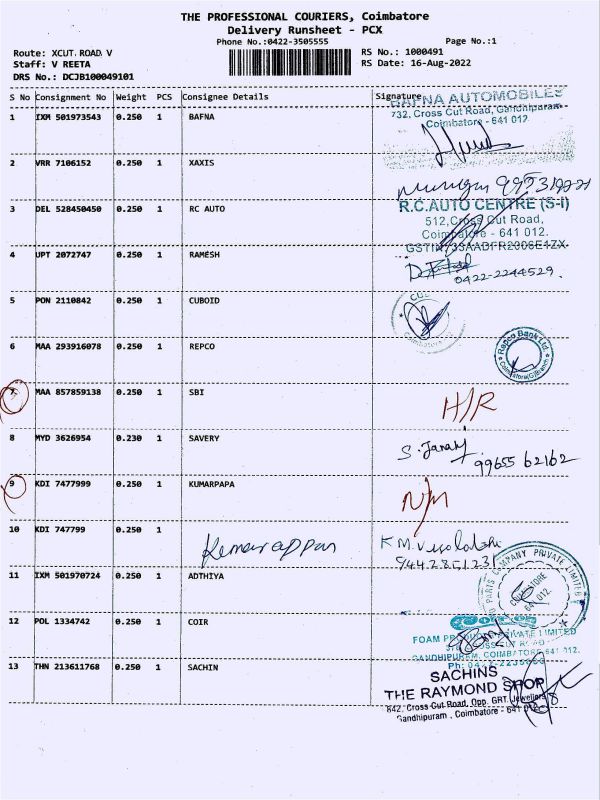 THE PROFESSIONAL COURIERS, Coimbatore
Delivery Runsheet - PCX
Phone No.:0422-3505555
Page No.:1
Route: XCUT ROAD V
RS No.: 1000491
Staff: V REETA
RS Date: 16-Aug-2022
DRS No.: DCJB100049101
S No Consignment No Weight PCS Consignee Details Signature
BAFNA AUTOMOBILES
732, Cross Cut Road, Gandhipuram
Coimbatore - 641 012.
1 IXM 501973543 0.250 1 BAFNA
2 VRR 7106152 0.250 1 XAXIS
3 DEL 528450450 0.250 1 RC AUTO
R.C.AUTO CENTRE (S-I)
512,Cross Cut Road,
Coimbatore - 641 012.
GSTIN 33AADFR2006E1ZX
4 UPT 2072747 0.250 1 RAMESH
0422-2244529.
5 PON 2110842 0.250 1 CUBOID
6 MAA 293916078 0.250 1 REPCO
Repco Bank Ltd.
7 MAA 857859138 0.250 1 SBI
H/R
8 MYD 3626954 0.230 1 SAVERY
S. Janaky
99655 62162
9 KDI 7477999 0.250 1 KUMARPAPA
N/M
10 KDI 747799 0.250 1
Kumarappan
9442851231
11 IXM 501970724 0.250 1 ADTHIYA
PARTS COMPANY PRIVATE LIMITED
COIMBATORE
641 012
12 POL 1334742 0.250 1 COIR
FOAM PRODUCTS PRIVATE LIMITED
CROSS CUT ROAD
GANDHIPURAM, COIMBATORE-641 012.
13 THN 213611768 0.250 1 SACHIN
SACHINS
THE RAYMOND SHOP
842, Cross Cut Road, Opp. GRT. Jewellers
Gandhipuram, Coimbatore - 641 012.